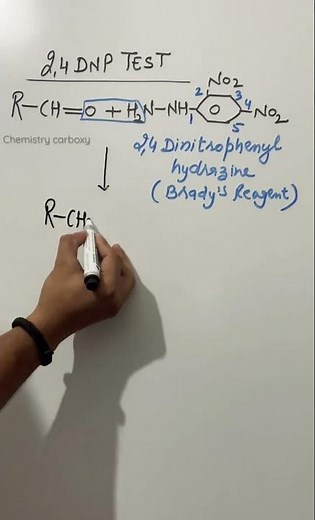 2,4 DNP TEST
NO2
R-CH=O + H2N-NH-
1 2 3 4 5
-NO2
Chemistry carboxy
2,4 Dinitrophenyl
hydrazine
(Brady's Reagent)
R-CH